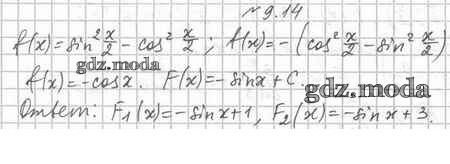 № 9.14
f(x)=sin² x/2 - cos² x/2; f(x)=-(cos² x/2 - sin² x/2)
gdz.moda
f(x)=-cosx. F(x)=-sinx+C.
gdz.moda
Ответ: F₁(x)=-sinx+1, F₂(x)=-sinx+3.